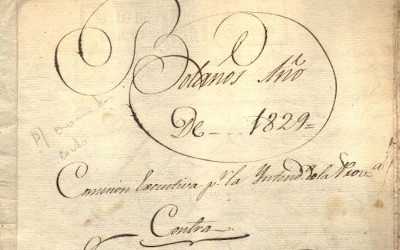 Bolaños Año
De 1829=
Comision Executiva p.r la Intend.a de la Prov.a
Contra